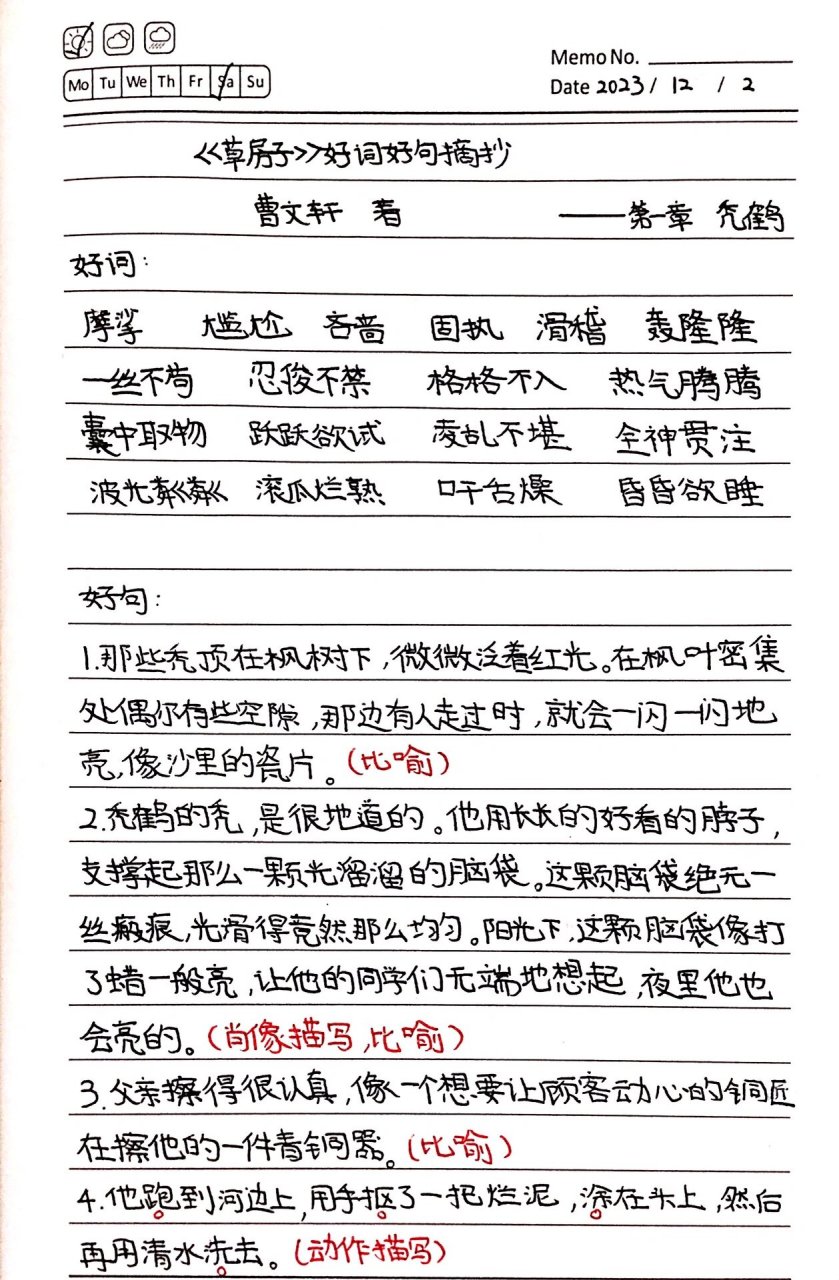 Memo No.
Mo Tu We Th Fr Sa Su
Date 2023 / 12 / 2
《草房子》好词好句摘抄
曹文轩 著 ——第一章 秃鹤
好词：
摩挲 尴尬 吝啬 固执 滑稽 轰隆隆
一丝不苟 忍俊不禁 格格不入 热气腾腾
囊中取物 跃跃欲试 凌乱不堪 全神贯注
波光粼粼 滚瓜烂熟 口干舌燥 昏昏欲睡
好句：
1.那些秃顶在枫树下，微微泛着红光。在枫叶密集
处偶尔有些空隙，那边有人走过时，就会一闪一闪地
亮，像沙里的瓷片。（比喻）
2.秃鹤的秃，是很地道的。他用长长的好看的脖子，
支撑起那么一颗光溜溜的脑袋。这颗脑袋绝无一
丝瘢痕，光滑得竟然那么均匀。阳光下，这颗脑袋像打
了蜡一般亮，让他的同学们无端地想起，夜里他也
会亮的。（肖像描写，比喻）
3.父亲擦得很认真，像一个想要让顾客动心的铜匠
在擦他的一件青铜器。（比喻）
4.他跑到河边上，用手抠了一把烂泥，涂在头上，然后
再用清水洗去。（动作描写）